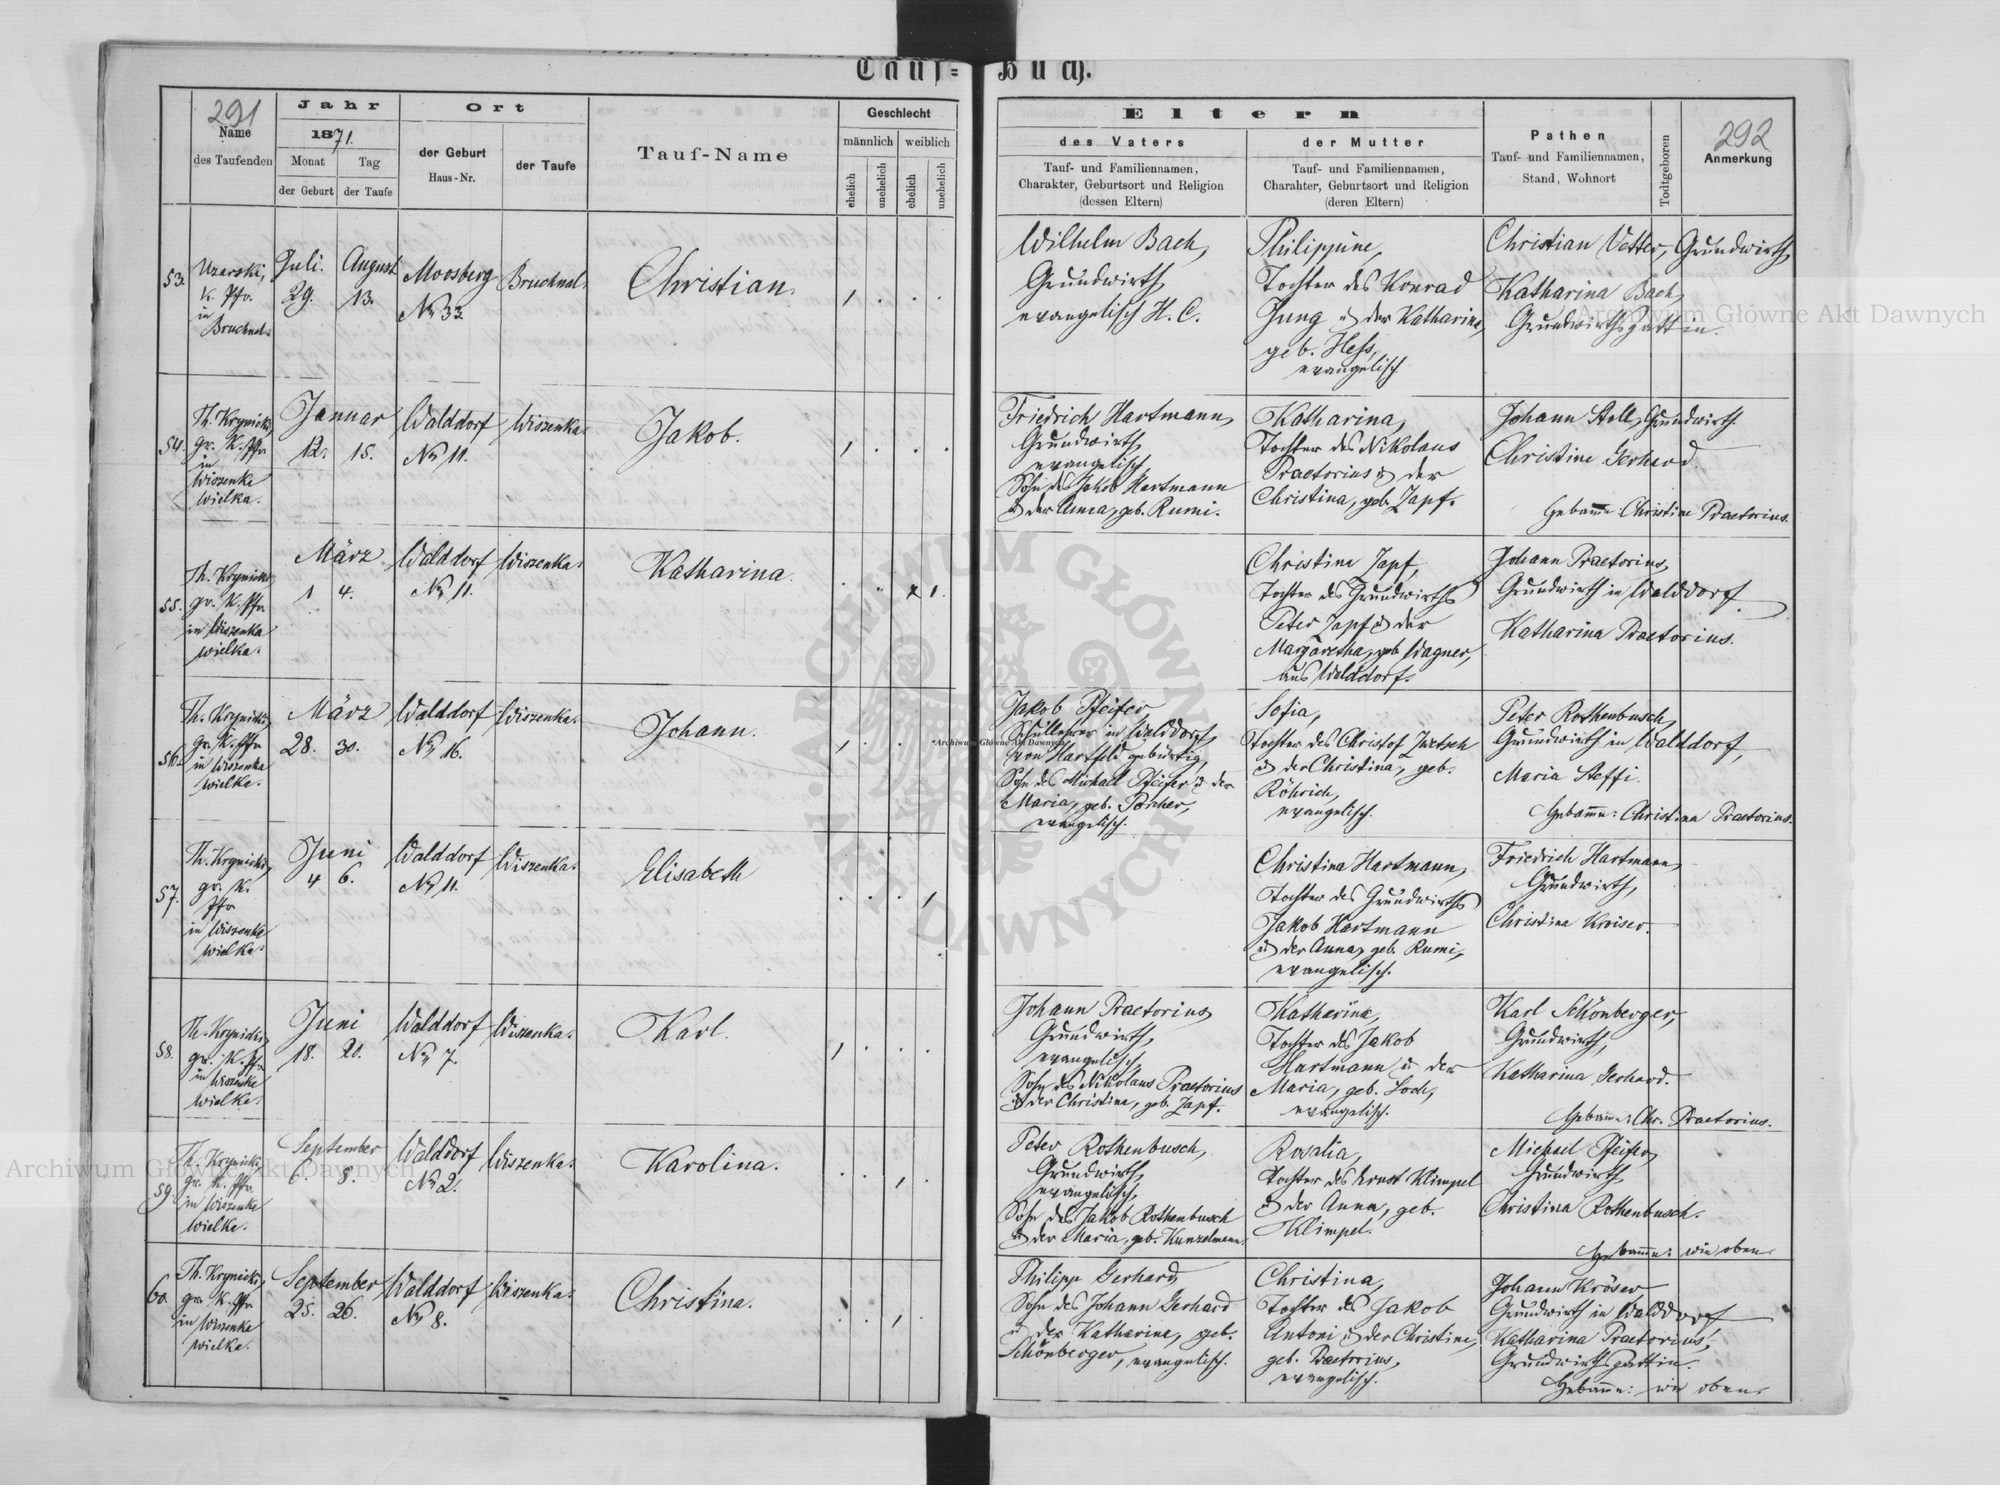 Tauf-Buch.
291
Name
des Taufenden
Jahr
1871.
Monat
Tag
der Geburt
der Taufe
Ort
der Geburt
Haus-Nr.
der Taufe
Tauf-Name
Geschlecht
männlich
weiblich
ehelich
unehelich
ehelich
unehelich
Eltern
des Vaters
Tauf- und Familiennamen,
Charakter, Geburtsort und Religion
(dessen Eltern)
der Mutter
Tauf- und Familiennamen,
Charahter, Geburtsort und Religion
(deren Eltern)
Pathen
Tauf- und Familiennamen,
Stand, Wohnort
Todtgeboren
292
Anmerkung
53.
k. Pfr.
in
Juli.
29.
August
13.
Moosberg
No 33.
Bruchnal.
Christian.
Wilhelm Bach,
Grundwirth,
evangelisch H. C.
Philippine,
Tochter des Konrad
Jung u der Katharina,
geb. Hess,
evangelisch
Christian Vetter, Grundwirth,
Katharina Bach,
Grundwirthsgattin.
54.
Th. Krynicki,
gr. k. Pfr.
in
Wiszenka
wielka.
Januar
12. 15.
Walddorf
No 11.
Wiszenka.
Jakob.
Friedrich Hartmann,
Grundwirth,
evangelisch,
Sohn des Jakob Hartmann
u der Anna, geb. Rumi.
Katharina,
Tochter des Nikolaus
Praetorius u der
Christina, geb. Zapf.
Johann Stell, Grundwirth.
Christine Gerhard.
Hebamme: Christine Praetorius.
55.
Th. Krynicki,
gr. k. Pfr.
in Wiszenka
wielka.
März
1 4.
Walddorf
No 11.
Wiszenka.
Katharina.
Christine Zapf,
Tochter des Grundwirths
Peter Zapf u der
Margaretha, geb. Wagner,
aus Walddorf.
Johann Praetorius,
Grundwirth in Walddorf.
Katharina Praetorius.
56.
Th. Krynicki,
gr. k. Pfr.
in Wiszenka
wielka.
März
28. 30.
Walddorf
No 16.
Wiszenka.
Johann.
Jakob Pfeifer
Schullehrer in Walddorf,
von Hartfeld gebürtig,
Sohn des Michael Pfeifer u der
Maria, geb.
evangelisch.
Sofia,
Tochter des Christof
u der Christina, geb.
Röhrich,
evangelisch.
Peter Rothenbusch,
Grundwirth in Walddorf,
Maria Steffi.
Hebamme: Christina Praetorius.
57.
Th. Krynicki,
gr. k.
Pfr.
in Wiszenka
wielka.
Juni
4 6.
Walddorf
No 11.
Wiszenka.
Elisabeth
Christina Hartmann,
Tochter des Grundwirths
Jakob Hartmann
u der Anna, geb. Rumi,
evangelisch.
Friedrich Hartmann,
Grundwirth,
Christina Kroiser.
58.
Th. Krynicki,
gr. k. Pfr.
in Wiszenka
wielka.
Juni
18. 20.
Walddorf
No 7.
Wiszenka.
Karl.
Johann Praetorius,
Grundwirth,
evangelisch,
Sohn des Nikolaus Praetorius
u der Christina, geb. Zapf.
Katharina,
Tochter des Jakob
Hartmann u der
Maria, geb. Loch,
evangelisch.
Karl Schönberger,
Grundwirth,
Katharina Gerhard.
Hebamme: Chr. Praetorius.
59.
Th. Krynicki,
gr. k. Pfr.
in Wiszenka
wielka.
September
6. 8.
Walddorf
No 2.
Wiszenka.
Karolina.
Peter Rothenbusch,
Grundwirth,
evangelisch,
Sohn des Jakob Rothenbusch
u der Maria, geb. Kunzelmann.
Rosalia,
Tochter des Ernst Klimpel
u der Anna, geb.
Klimpel.
Michael Pfeifer,
Grundwirth,
Christina Rothenbusch.
Hebamme: wie oben.
60.
Th. Krynicki,
gr. k. Pfr.
in Wiszenka
wielke.
September
25. 26.
Walddorf
No 8.
Wiszenka.
Christina.
Philipp Gerhard,
Sohn des Johann Gerhard
u der Katharina, geb.
Schönberger, evangelisch.
Christina,
Tochter des Jakob
Antoni u der Christine,
geb. Praetorius,
evangelisch.
Johann Kröser
Grundwirth in Walddorf
Katharina Praetorius,
Grundwirthsgattin.
Hebamme: wie oben.
Archiwum Główne Akt Dawnych
Archiwum Główne Akt Dawnych
Archiwum Główne Akt Dawnych
ARCHIWUM GŁÓWNE AKT DAWNYCH